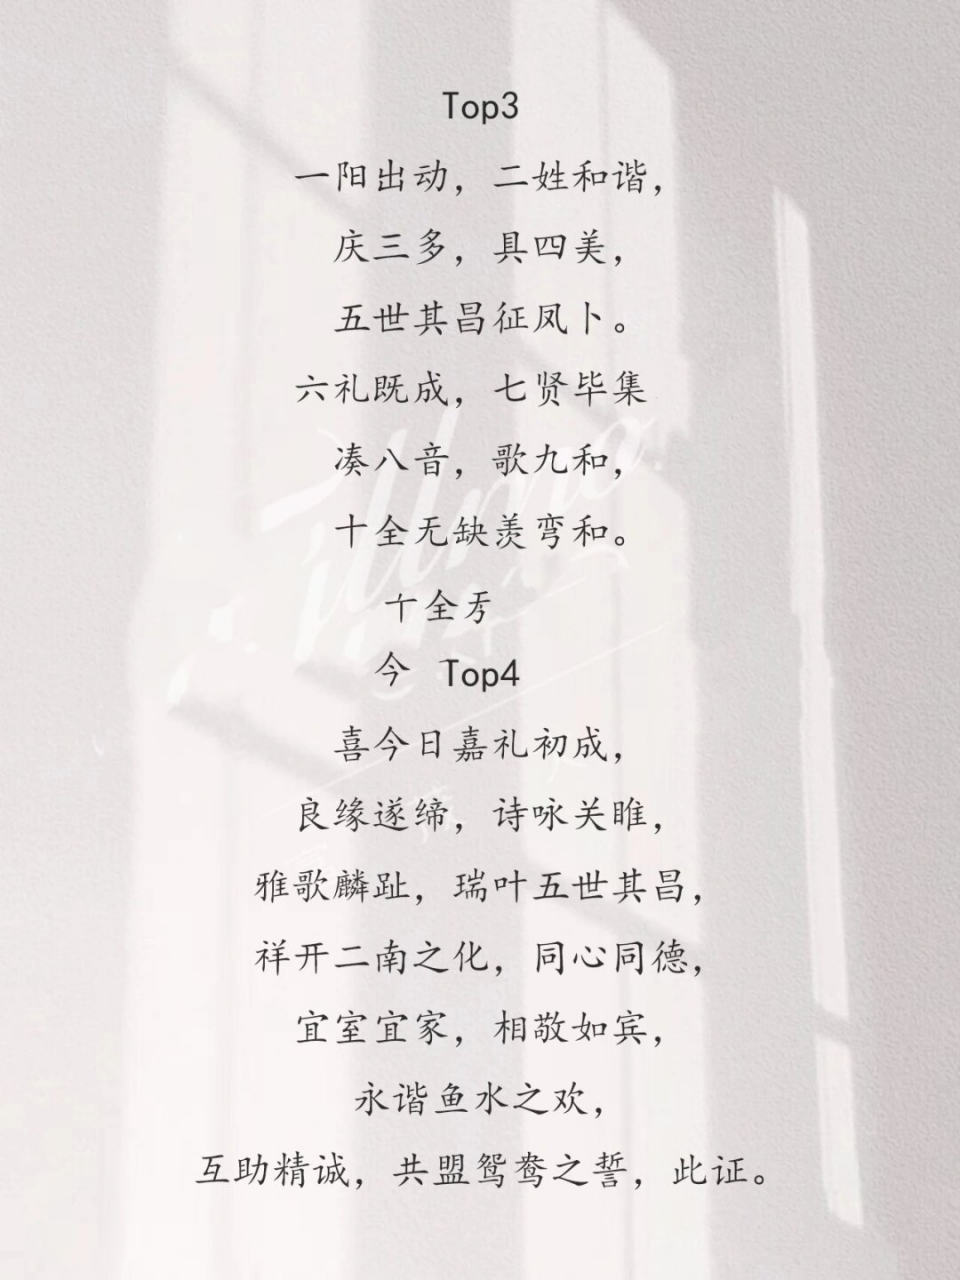 Top3
一阳出动，二姓和谐，
庆三多，具四美，
五世其昌征凤卜。
六礼既成，七贤毕集
凑八音，歌九和，
十全无缺羡弯和。
十全
今 Top4
喜今日嘉礼初成，
良缘遂缔，诗咏关睢，
雅歌麟趾，瑞叶五世其昌，
祥开二南之化，同心同德，
宜室宜家，相敬如宾，
永谐鱼水之欢，
互助精诚，共盟鸳鸯之誓，此证。